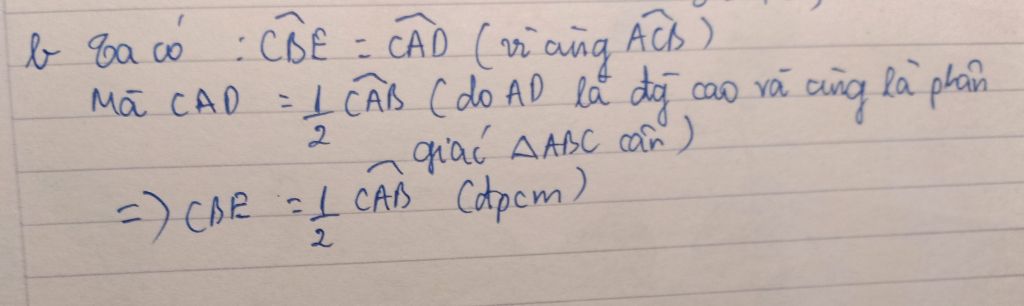 b Ta có : CBE = CAD (vì cùng ACB)
Mà CAD = 1/2 CAB (do AD là đg cao và cũng là phân
giác △ABC cân)
=> CBE = 1/2 CAB (đpcm)